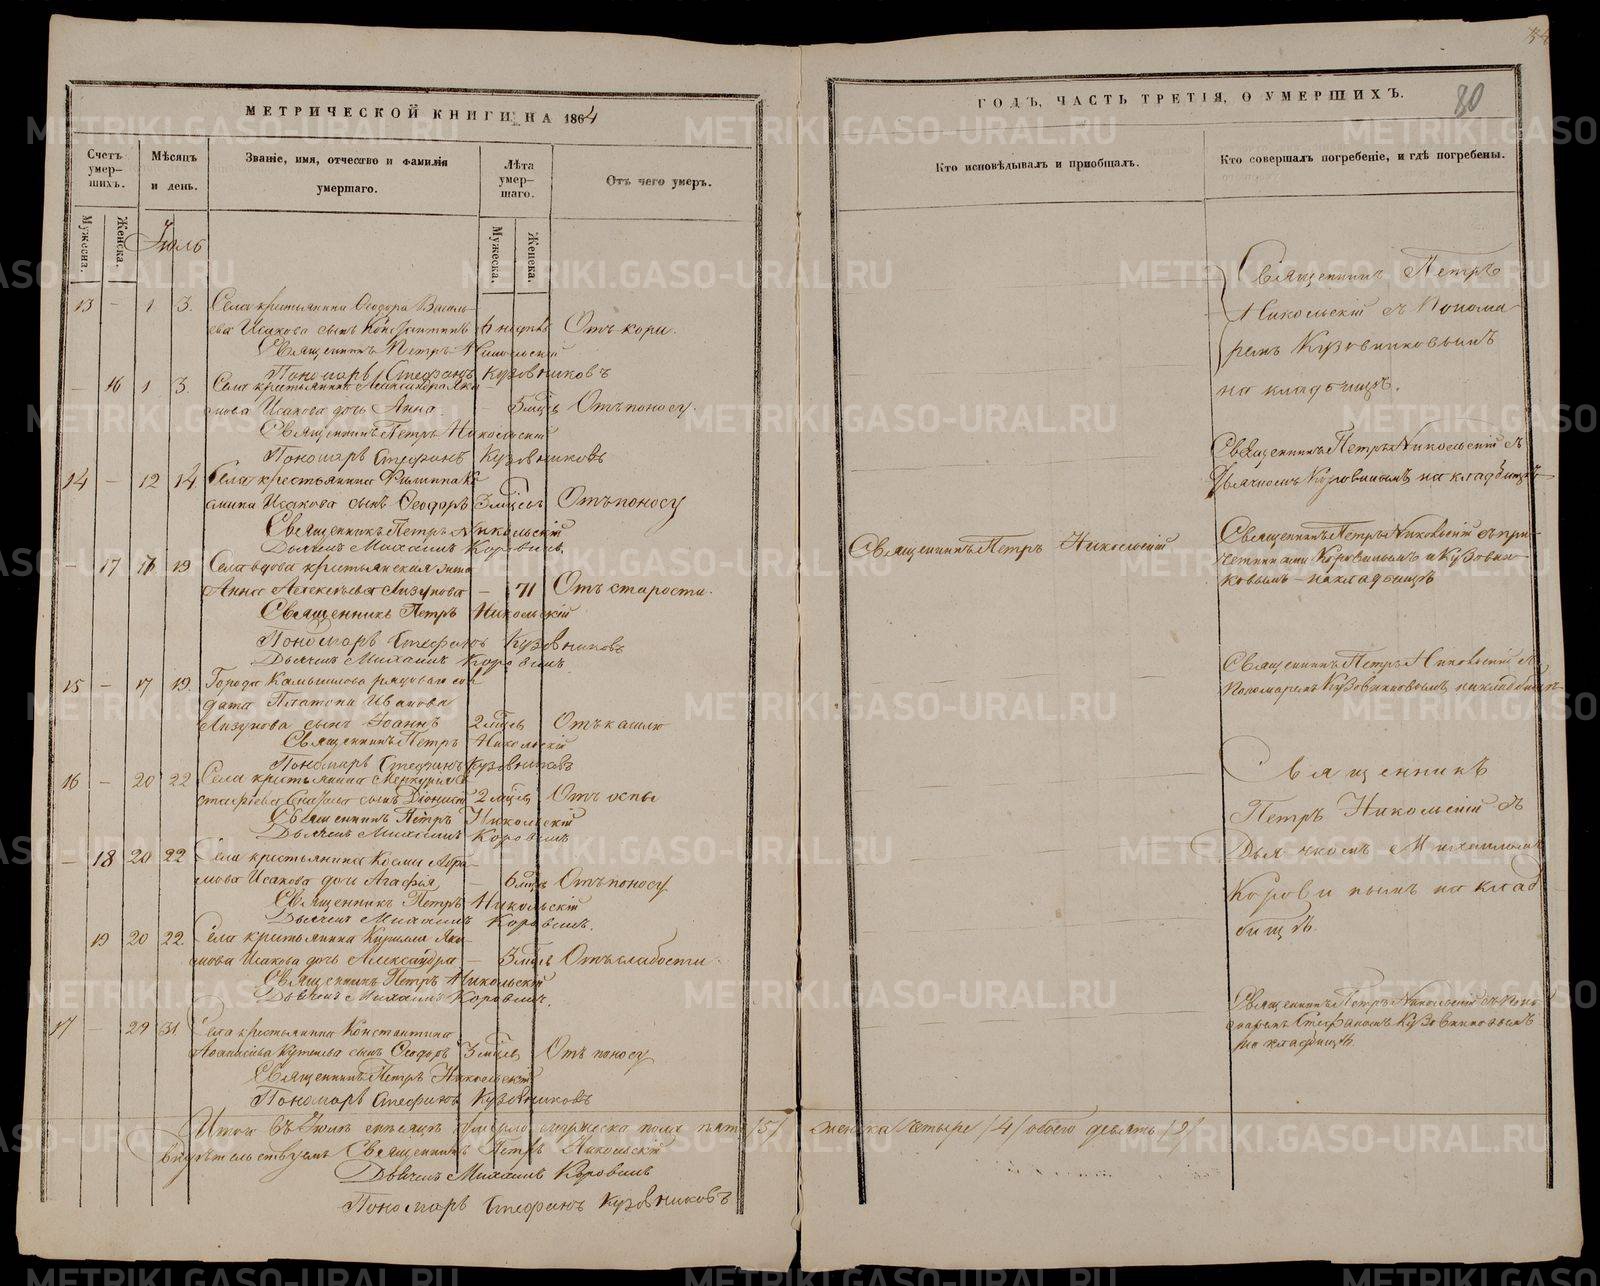 МЕТРИЧЕСКОЙ КНИГИ НА 1864
Счетъ умер-шихъ.
Мѣсяцъ и день.
Званіе, имя, отчество и фамилія умершаго.
Лѣта умер-шаго.
Отъ чего умеръ.
Мужеска.
Женска.
Мужеска.
Женска.
Іюль
13 – 1 3. Села крестьянина Ѳеодора Василь-
ева Исакова сынъ Константинъ 6 Отъ кори.
Священникъ Петръ Никольскій
Пономарь Стефанъ Кузовниковъ
– 16 1 3. Села крестьянина Александра Яки-
мова Исакова дочь Анна – 5 мѣсц Отъ поносу.
Священникъ Петръ Никольскій
Пономарь Стефанъ Кузовниковъ
14 – 12 14 Села крестьянина Филиппа
Исакова сынъ Ѳеодоръ 3 мѣсцъ Отъ поносу
Священникъ Петръ Никольскій
Дьячекъ Михаилъ Коровинъ.
– 17 17 19 Села вдова крестьянская жена
Анна Алексѣева Лизунова – 71 Отъ старости.
Священникъ Петръ Никольскій
Пономарь Стефанъ Кузовниковъ
Дьячекъ Михаилъ Коровинъ
15 – 17 19. Города Камышлова рядоваго сол
дата Платона Иванова
Лизунова сынъ Іоаннъ 2 мѣсц Отъ кашлю
Священникъ Петръ Никольскій
Пономарь Стефанъ Кузовниковъ
16 – 20 22 Села крестьянина Меркурія
сынъ Діонисій 2 мѣсц Отъ оспы
Священникъ Петръ Никольскій
Дьячекъ Михаилъ Коровинъ
– 18 20 22 Села крестьянина Космы
Исакова дочь Агафія – 6 мѣсц Отъ поносу
Священникъ Петръ Никольскій
Дьячекъ Михаилъ Коровинъ.
19 20 22 Села крестьянина Кирилла Яки-
мова Исакова дочь Александра – 3 мѣсц Отъ слабости.
Священникъ Петръ Никольскій
Дьячекъ Михаилъ Коровинъ.
17 – 29 31. Села крестьянина Константина
Аѳанасьева сынъ Ѳеодоръ 3 мѣсц Отъ поносу
Священникъ Петръ Никольскій
Пономарь Стефанъ Кузовниковъ
Итого въ Іюлѣ мѣсяцѣ умерло мужеска пола пять /5/
Священникъ Петръ Никольскій
Дьячекъ Михаилъ Коровинъ
Пономарь Стефанъ Кузовниковъ
80
ГОДЪ, ЧАСТЬ ТРЕТІЯ, О УМЕРШИХЪ.
Кто исповѣдывалъ и пріобщалъ.
Кто совершалъ погребеніе, и гдѣ погребены.
Священникъ Петръ
Никольскій съ Понома
ремъ Кузовниковымъ
на кладбищѣ.
Священникъ Петръ Никольскій съ
Дьячкомъ Коровинымъ на кладбищѣ
Священникъ Петръ Никольскій
Священникъ Петръ Никольскій съ при
четниками Коровинымъ и Кузовни
ковымъ – на кладбищѣ
Священникъ Петръ Никольскій съ
Пономаремъ Кузовниковымъ на кладбищѣ
Священникъ
Петръ Никольскій съ
Дьячкомъ Михаиломъ
Коровинымъ на клад
бищѣ.
Священникъ Петръ Никольскій съ Поно
маремъ Стефаномъ Кузовниковымъ
на кладбищѣ.
женска четыре /4/ обоего девять /9/
METRIKI.GASO-URAL.RU